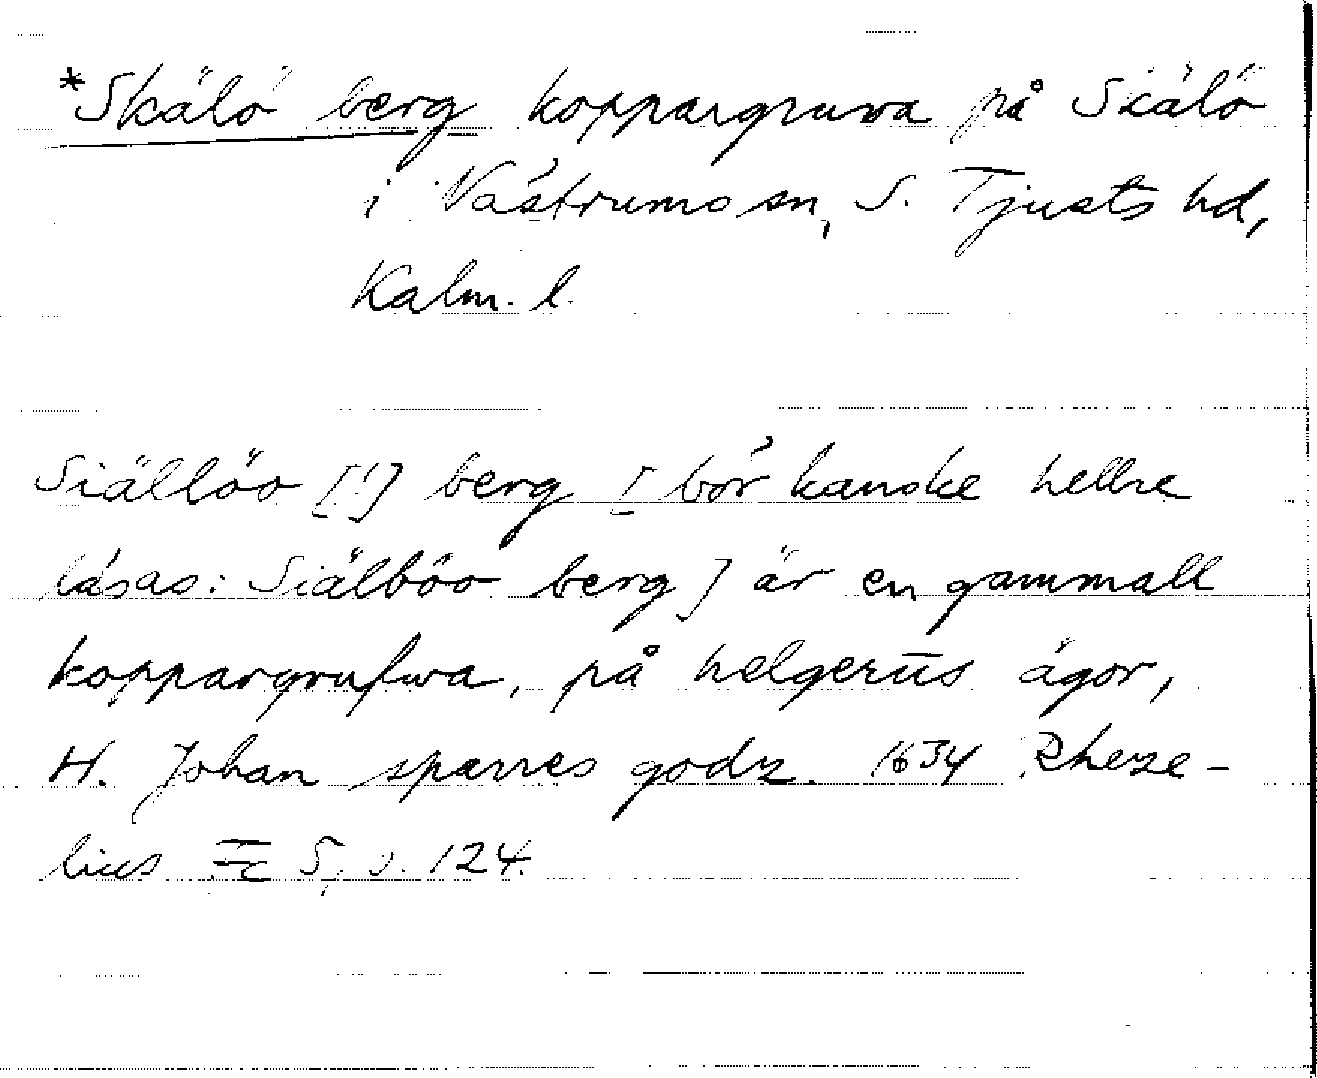 *Skälö berg koppargruva på Siälö
i Västrums sn, S. Tjusts hd,
Kalm. l.
Siällöo [!] berg [bör kanske hellre
läsas: Siälböo berg] är en gammall
koppargrufwa, på helgerüs ägor,
H. Johan sparres godz. 1634 Rheze-
lius Fc 5, s. 124.